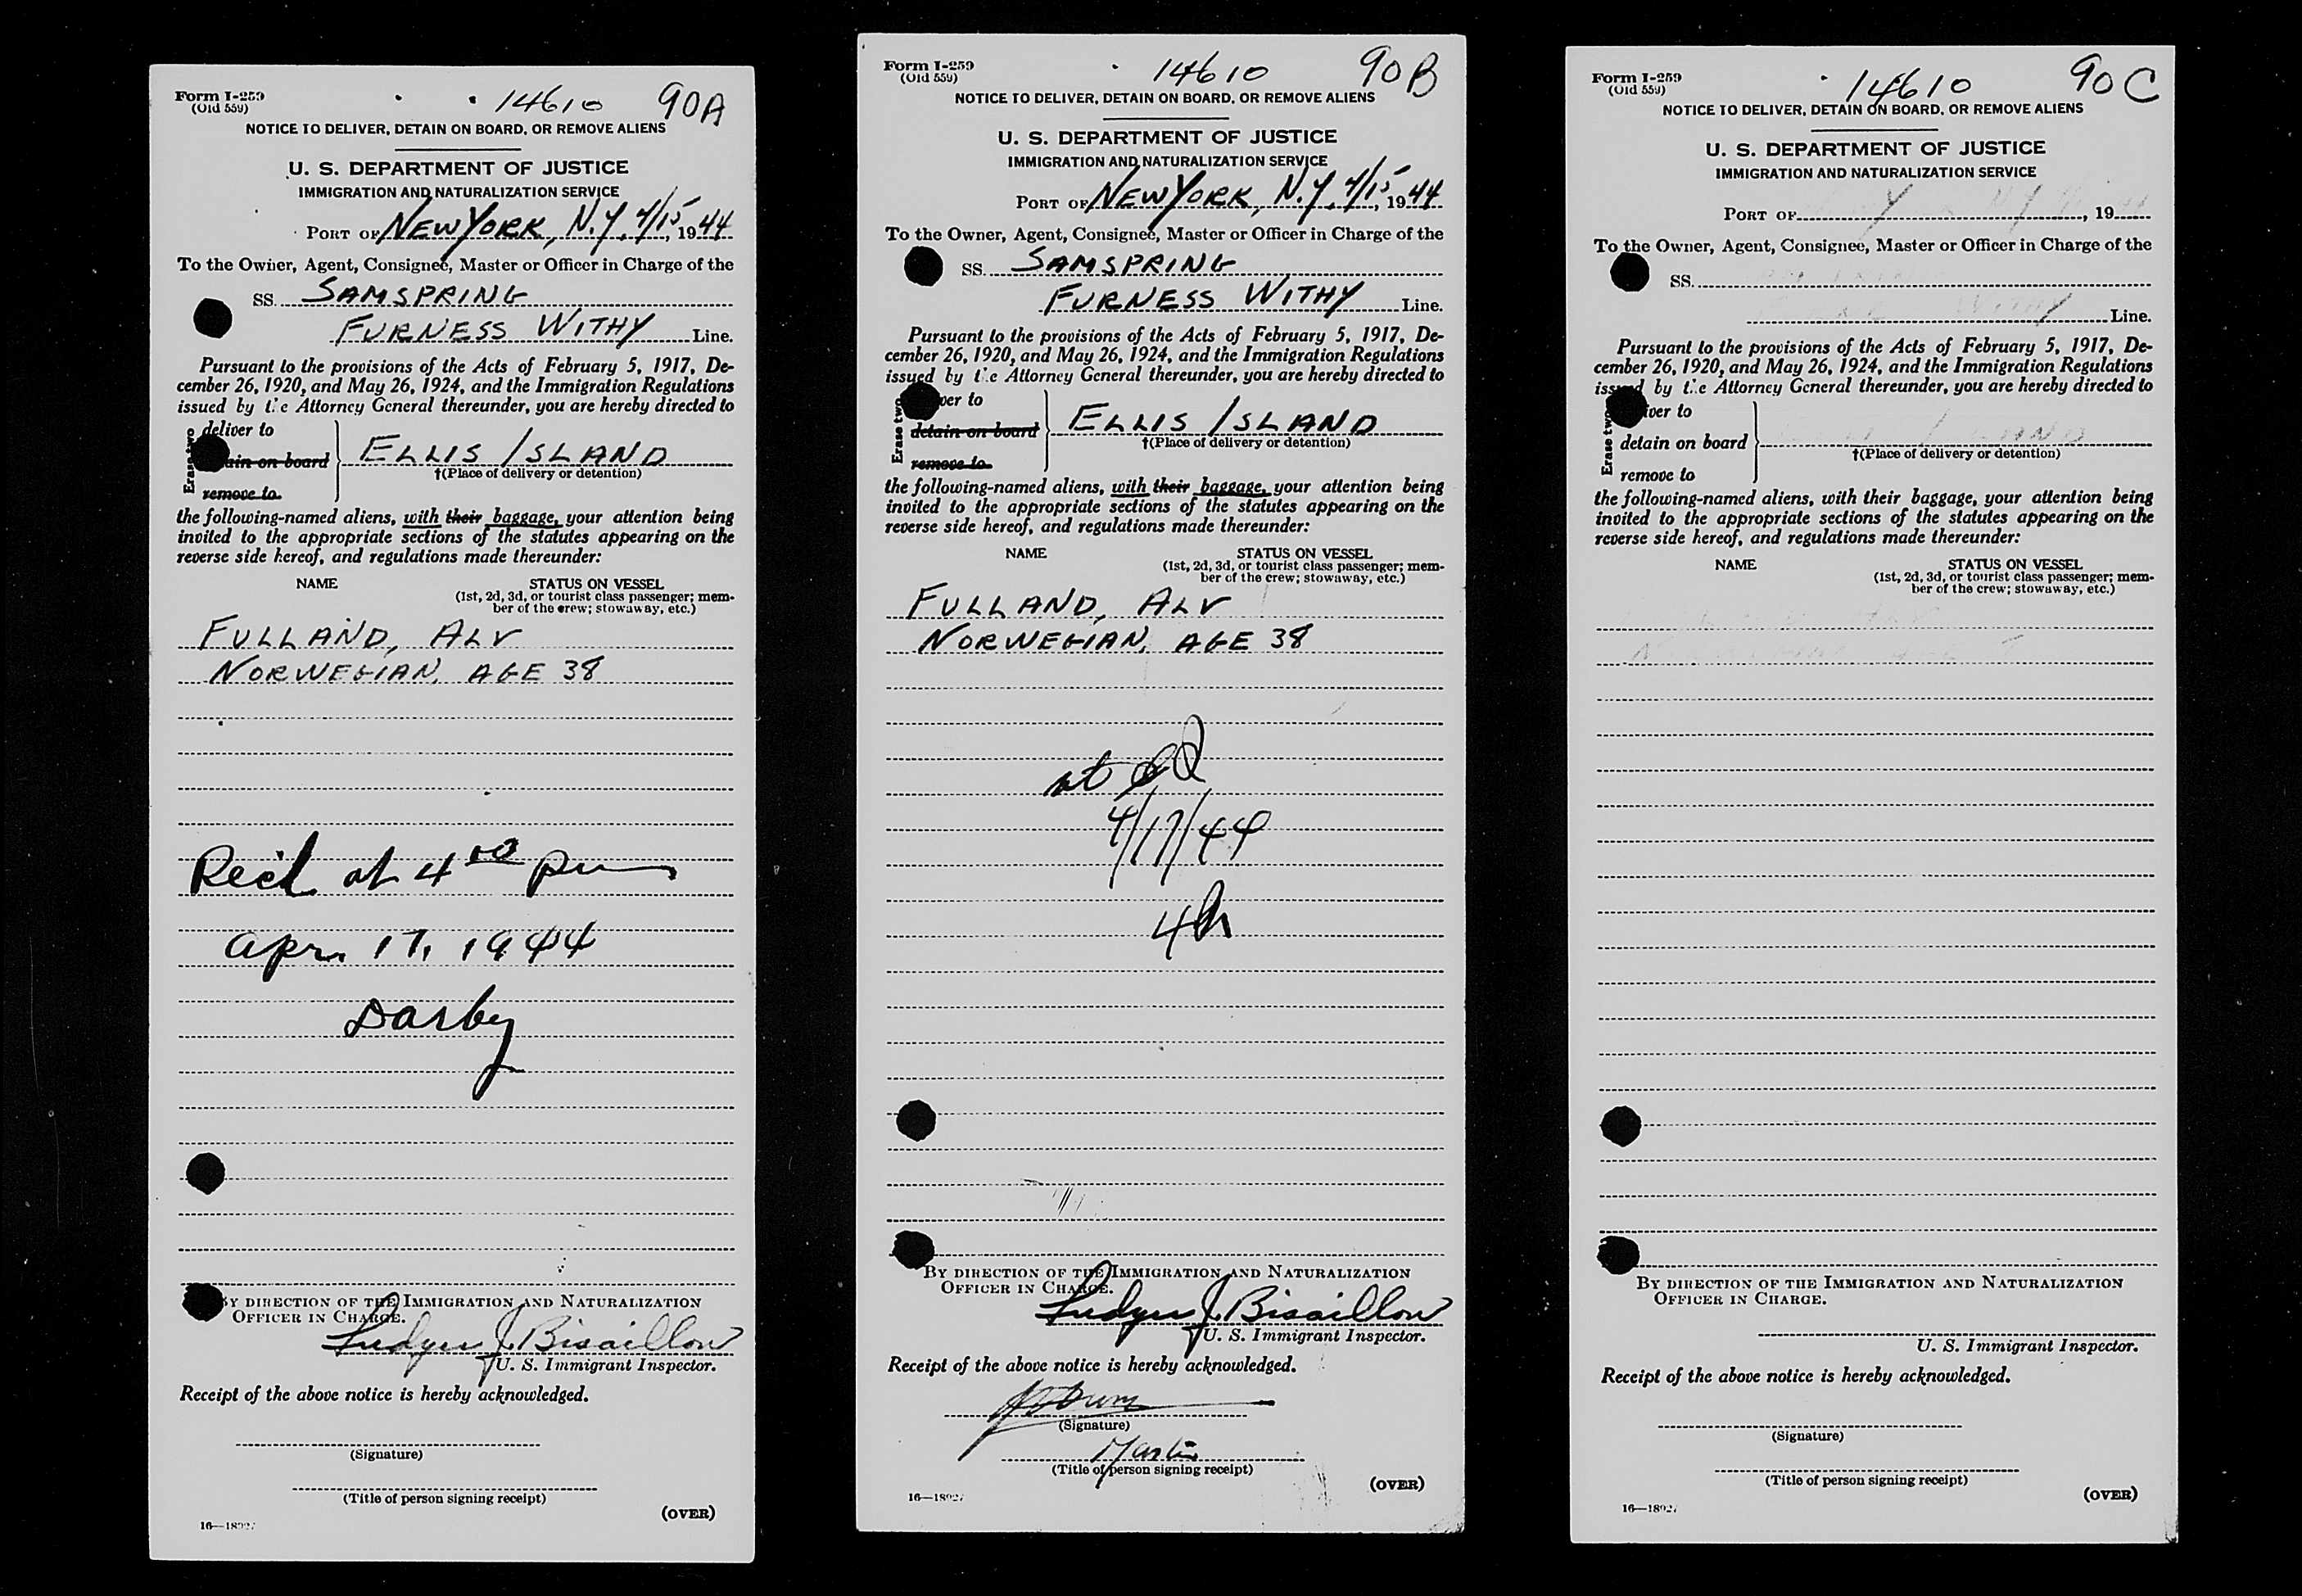 Form I-259
(Old 559)
14610 90A
NOTICE TO DELIVER, DETAIN ON BOARD, OR REMOVE ALIENS
U. S. DEPARTMENT OF JUSTICE
IMMIGRATION AND NATURALIZATION SERVICE
PORT OF NEW YORK, N.Y. 4/15, 1944
To the Owner, Agent, Consignee, Master or Officer in Charge of the
SS. SAMSPRING
FURNESS WITHY Line.
Pursuant to the provisions of the Acts of February 5, 1917, De-
cember 26, 1920, and May 26, 1924, and the Immigration Regulations
issued by the Attorney General thereunder, you are hereby directed to
Erase two
deliver to
ain on board
remove to
ELLIS ISLAND
†(Place of delivery or detention)
the following-named aliens, with their baggage, your attention being
invited to the appropriate sections of the statutes appearing on the
reverse side hereof, and regulations made thereunder:
NAME STATUS ON VESSEL
(1st, 2d, 3d, or tourist class passenger; mem-
ber of the crew; stowaway, etc.)
FULLAND, ALV
NORWEGIAN, AGE 38
Rec'd at 4 00 pm
Apr. 17, 1944
Darby
BY DIRECTION OF THE IMMIGRATION AND NATURALIZATION
OFFICER IN CHARGE.
Ludger J. Bisaillon
U. S. Immigrant Inspector.
Receipt of the above notice is hereby acknowledged.
(Signature)
(Title of person signing receipt)
(OVER)
Form I-259
(Old 559)
14610 90B
NOTICE TO DELIVER, DETAIN ON BOARD, OR REMOVE ALIENS
U. S. DEPARTMENT OF JUSTICE
IMMIGRATION AND NATURALIZATION SERVICE
PORT OF NEW YORK, N.Y. 4/15, 1944
To the Owner, Agent, Consignee, Master or Officer in Charge of the
SS. SAMSPRING
FURNESS WITHY Line.
Pursuant to the provisions of the Acts of February 5, 1917, De-
cember 26, 1920, and May 26, 1924, and the Immigration Regulations
issued by the Attorney General thereunder, you are hereby directed to
Erase two
ver to
detain on board
remove to
ELLIS ISLAND
†(Place of delivery or detention)
the following-named aliens, with their baggage, your attention being
invited to the appropriate sections of the statutes appearing on the
reverse side hereof, and regulations made thereunder:
NAME STATUS ON VESSEL
(1st, 2d, 3d, or tourist class passenger; mem-
ber of the crew; stowaway, etc.)
FULLAND, ALV
NORWEGIAN, AGE 38
at
4/17/44
BY DIRECTION OF THE IMMIGRATION AND NATURALIZATION
OFFICER IN CHARGE.
Ludger J. Bisaillon
U. S. Immigrant Inspector.
Receipt of the above notice is hereby acknowledged.
(Signature)
Master
(Title of person signing receipt)
(OVER)
Form I-259
(Old 559)
14610 90C
NOTICE TO DELIVER, DETAIN ON BOARD, OR REMOVE ALIENS
U. S. DEPARTMENT OF JUSTICE
IMMIGRATION AND NATURALIZATION SERVICE
PORT OF , 19
To the Owner, Agent, Consignee, Master or Officer in Charge of the
SS.
Line.
Pursuant to the provisions of the Acts of February 5, 1917, De-
cember 26, 1920, and May 26, 1924, and the Immigration Regulations
issued by the Attorney General thereunder, you are hereby directed to
Erase two
iver to
detain on board
remove to
†(Place of delivery or detention)
the following-named aliens, with their baggage, your attention being
invited to the appropriate sections of the statutes appearing on the
reverse side hereof, and regulations made thereunder:
NAME STATUS ON VESSEL
(1st, 2d, 3d, or tourist class passenger; mem-
ber of the crew; stowaway, etc.)
BY DIRECTION OF THE IMMIGRATION AND NATURALIZATION
OFFICER IN CHARGE.
U. S. Immigrant Inspector.
Receipt of the above notice is hereby acknowledged.
(Signature)
(Title of person signing receipt)
(OVER)